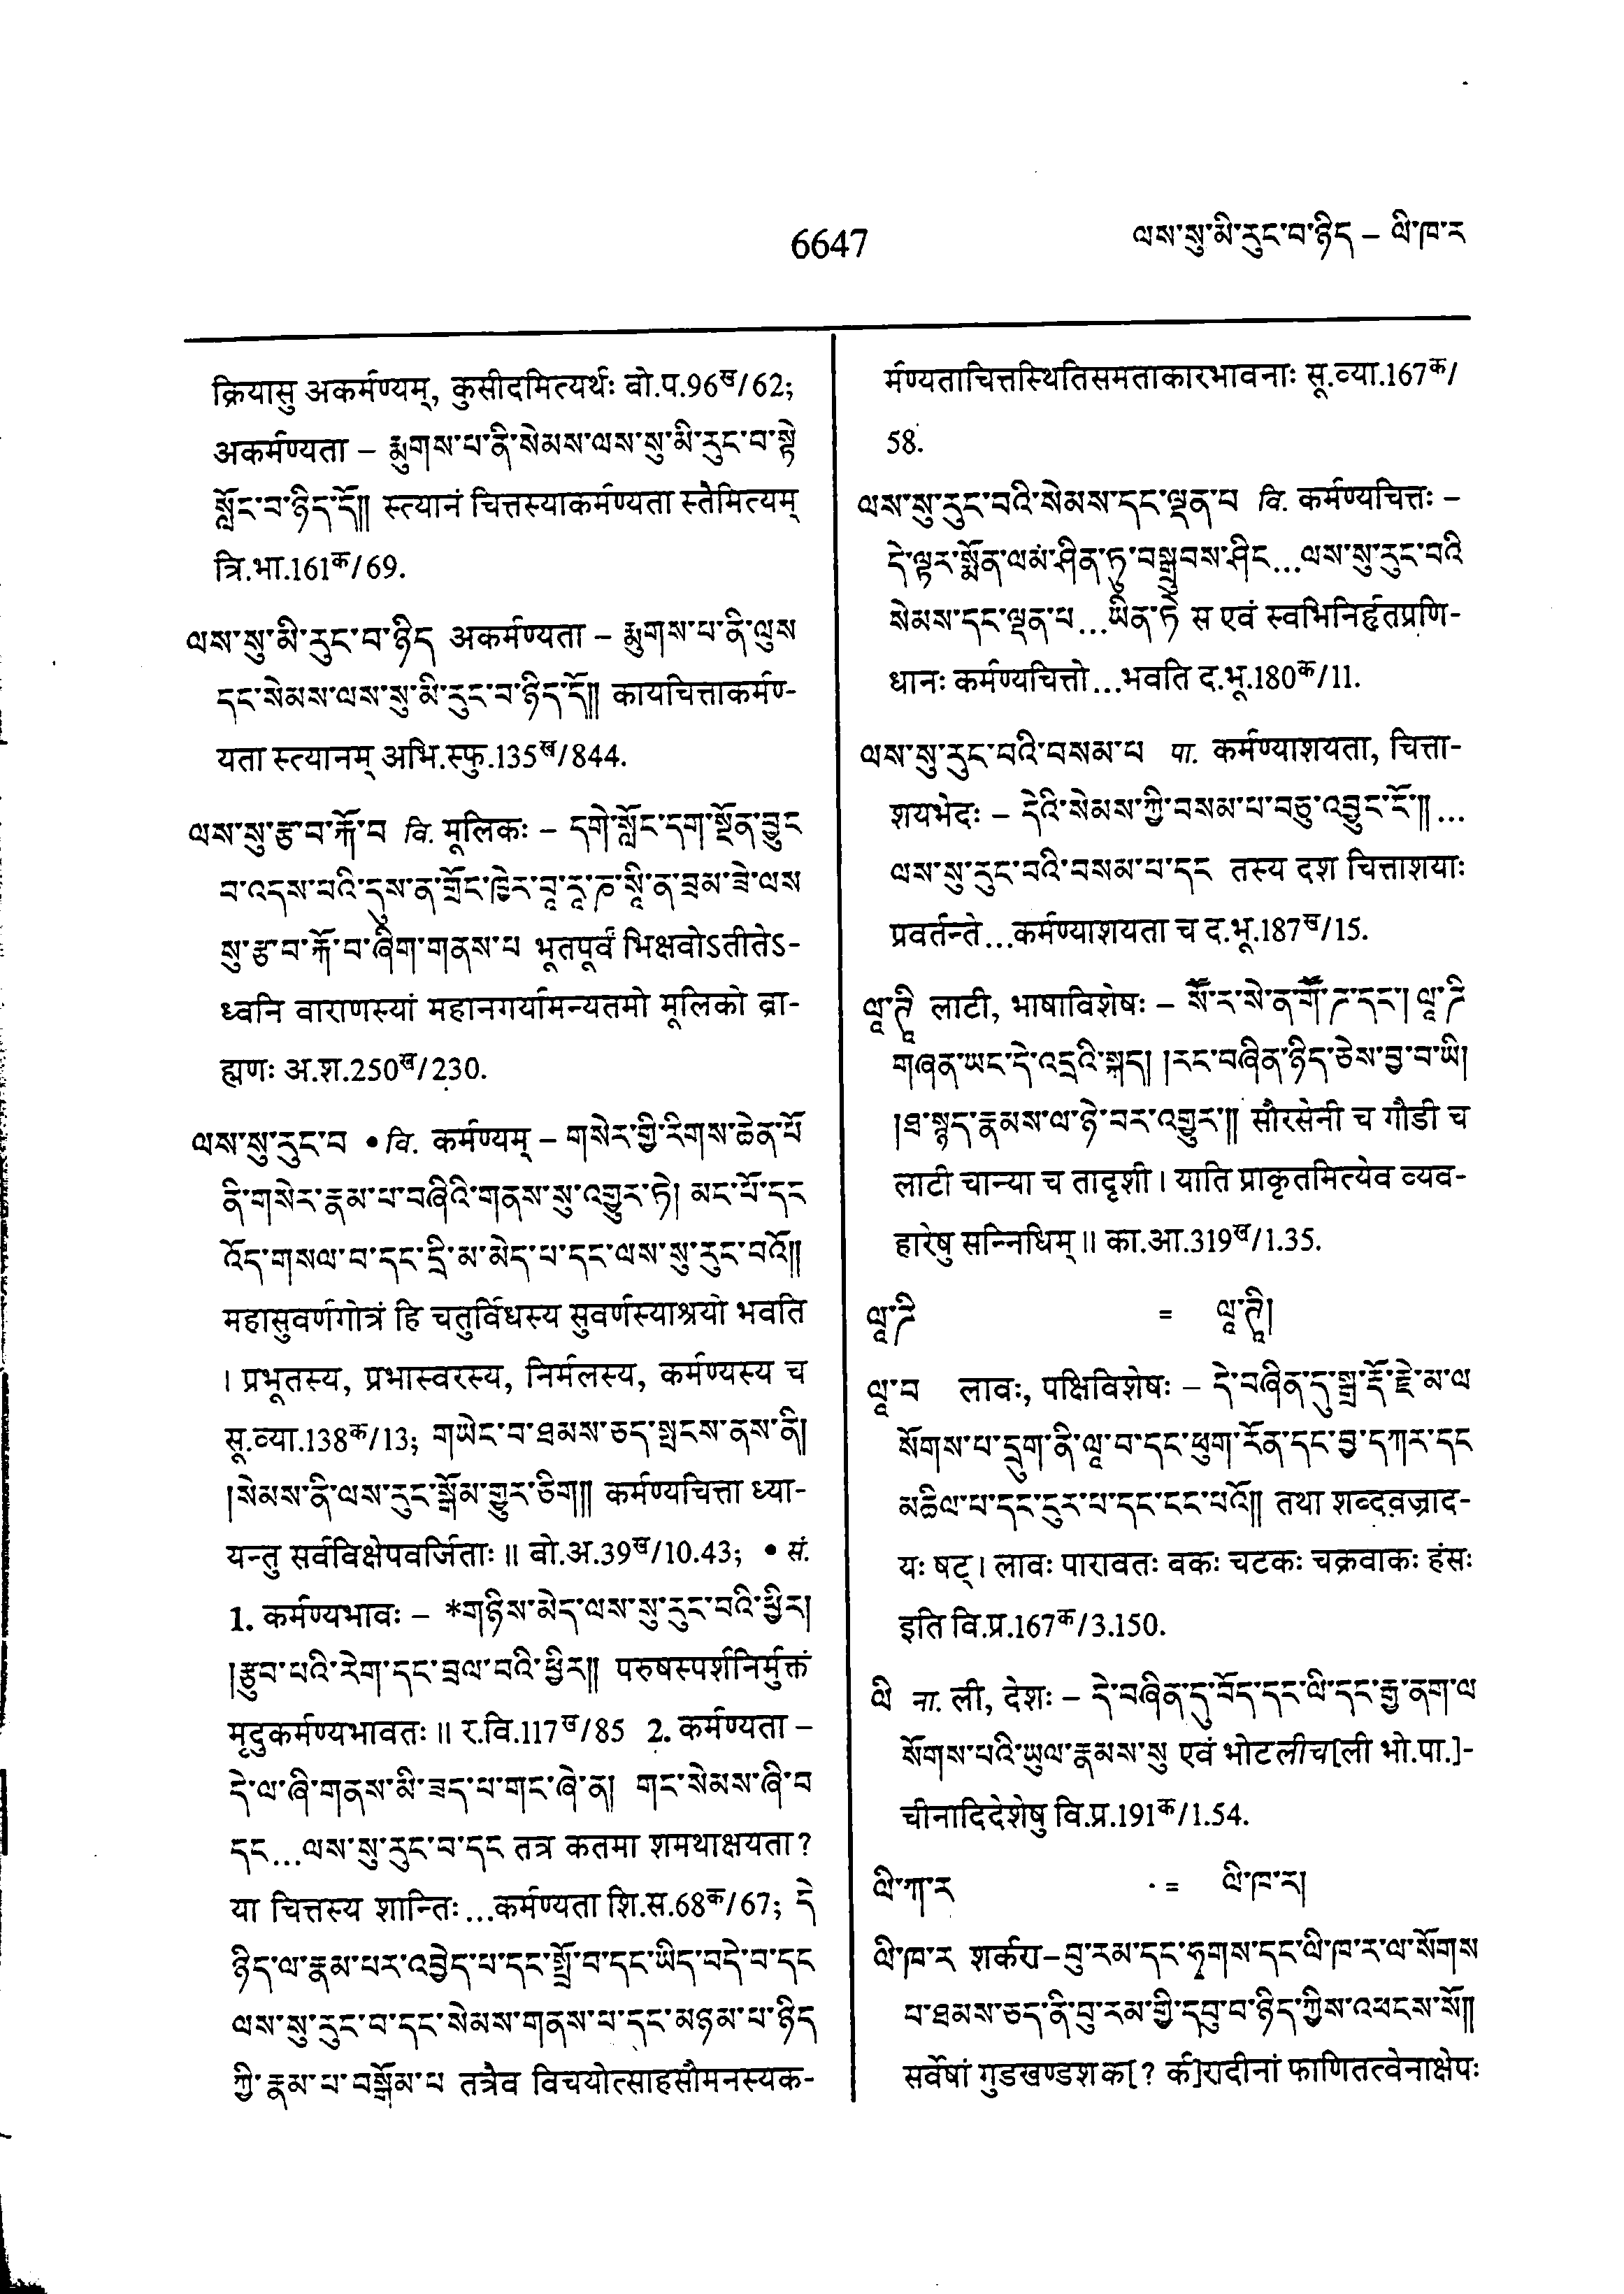 6647
ལས་སུ་མི་རུང་བ་ཉིད – ལི་ཁ་ར
क्रियासु अकर्मण्यम्, कुसीदमित्यर्थः बो.प.96ख/62;
अकर्मण्यता – རྨུགས་པ་ནི་སེམས་ལས་སུ་མི་རུང་བ་སྟེ
སློང་བ་ཉིད་དོ།། स्त्यानं चित्तस्याकर्मण्यता स्तैमित्यम्
त्रि.भा.161क/69.
ལས་སུ་མི་རུང་བ་ཉིད अकर्मण्यता – རྨུགས་པ་ནི་ལུས
དང་སེམས་ལས་སུ་མི་རུང་བ་ཉིད་དོ།། कायचित्ताकर्मण-
यता स्त्यानम् अभि.स्फु.135ख/844.
ལས་སུ་རྩ་བ་རྐོ་བ वि. मूलिकः – དགེ་སློང་དག་སྔོན་བྱུང
བ་འདས་པའི་དུས་ན་གྲོང་ཁྱེར་བཱ་རཱ་ཎ་སཱི་ན་བྲམ་ཟེ་ལས
སུ་རྩ་བ་རྐོ་བ་ཞིག་གནས་པ भूतपूर्वं भिक्षवोऽतीतेऽ-
ध्वनि वाराणस्यां महानगर्यामन्यतमो मूलिको ब्रा-
ह्मणः अ.श.250ख/230.
ལས་སུ་རུང་བ • वि. कर्मण्यम् – གསེར་གྱི་རིགས་ཆེན་པོ
ནི་གསེར་རྣམ་པ་བཞིའི་གནས་སུ་འགྱུར་ཏེ། མང་པོ་དང
འོད་གསལ་བ་དང་དྲི་མ་མེད་པ་དང་ལས་སུ་རུང་བའོ།།
महासुवर्णगोत्रं हि चतुर्विधस्य सुवर्णस्याश्रयो भवति
। प्रभूतस्य, प्रभास्वरस्य, निर्मलस्य, कर्मण्यस्य च
सू.व्या.138क/13; གཡེང་བ་ཐམས་ཅད་སྤངས་ནས་ནི།
།སེམས་ནི་ལས་རུང་སྒོམ་གྱུར་ཅིག།། कर्मण्यचित्ता ध्या-
यन्तु सर्वविक्षेपवर्जिताः ॥ बो.अ.39ख/10.43; • सं.
1. कर्मण्यभावः – *གཉིས་མེད་ལས་སུ་རུང་བའི་ཕྱིར།
།རྩུབ་པའི་རེག་དང་བྲལ་བའི་ཕྱིར།། परुषस्पर्शनिर्मुक्तं
मृदुकर्मण्यभावतः ॥ र.वि.117ख/85 2. कर्मण्यता –
དེ་ལ་ཞི་གནས་མི་ཟད་པ་གང་ཞེ་ན། གང་སེམས་ཞི་བ
དང…ལས་སུ་རུང་བ་དང तत्र कतमा शमथाक्षयता?
या चित्तस्य शान्तिः…कर्मण्यता शि.स.68क/67; དེ
ཉིད་ལ་རྣམ་པར་འབྱེད་པ་དང་སྤྲོ་བ་དང་ཡིད་བདེ་བ་དང
ལས་སུ་རུང་བ་དང་སེམས་གནས་པ་དང་མཉམ་པ་ཉིད
ཀྱི་རྣམ་པ་བསྒོམ་པ तत्रैव विचयोत्साहसौमनस्यक-
र्मण्यताचित्तस्थितिसमताकारभावनाः सू.व्या.167क/
58.
ལས་སུ་རུང་བའི་སེམས་དང་ལྡན་པ वि. कर्मण्यचित्तः –
དེ་ལྟར་སྨོན་ལམ་ཤིན་ཏུ་བསྒྲུབས་ཤིང…ལས་སུ་རུང་བའི
སེམས་དང་ལྡན་པ…ཡིན་ཏེ स एवं स्वभिनिर्हृतप्रणि-
धानः कर्मण्यचित्तो…भवति द.भू.180क/11.
ལས་སུ་རུང་བའི་བསམ་པ पा. कर्मण्याशयता, चित्ता-
शयभेदः – དེའི་སེམས་ཀྱི་བསམ་པ་བཅུ་འབྱུང་ངོ་།།…
ལས་སུ་རུང་བའི་བསམ་པ་དང तस्य दश चित्ताशयाः
प्रवर्तन्ते…कर्मण्याशयता च द.भू.187ख/15.
ལཱ་ཊཱི लाटी, भाषाविशेषः – སཽ་ར་སེ་ན་གཽ་ཌ་དང་། ལཱ་ཊི
གཞན་ཡང་དེ་འདྲའི་སྐད། །རང་བཞིན་ཉིད་ཅེས་བྱ་བ་ཡི།
།ཐ་སྙད་རྣམས་ལ་ཉེ་བར་འགྱུར།། सौरसेनी च गौडी च
लाटी चान्या च तादृशी । याति प्राकृतमित्येव व्यव-
हारेषु सन्निधिम् ॥ का.आ.319ख/1.35.
ལཱ་ཊི = ལཱ་ཊཱི།
ལཱ་བ लावः, पक्षिविशेषः – དེ་བཞིན་དུ་སྒྲ་རྡོ་རྗེ་མ་ལ
སོགས་པ་དྲུག་ནི་ལཱ་བ་དང་ཕུག་རོན་དང་བྱ་དཀར་དང
མཆིལ་པ་དང་ངུར་པ་དང་ངང་པའོ།། तथा शब्दवज्राद-
यः षट् । लावः पारावतः वकः चटकः चक्रवाकः हंसः
इति वि.प्र.167क/3.150.
ལི ना. ली, देशः – དེ་བཞིན་དུ་བོད་དང་ལི་དང་རྒྱ་ནག་ལ
སོགས་པའི་ཡུལ་རྣམས་སུ एवं भोटलीच[ली भो.पा.]-
चीनादिदेशेषु वि.प्र.191क/1.54.
ལི་ཀ་ར = ལི་ཁ་ར།
ལི་ཁ་ར शर्करा–བུ་རམ་དང་ཧྭགས་དང་ལི་ཁ་ར་ལ་སོགས
པ་ཐམས་ཅད་ནི་བུ་རམ་གྱི་དབུ་བ་ཉིད་ཀྱིས་འཕངས་སོ།།
सर्वेषां गुडखण्डशक[? र्क]रादीनां फाणितत्वेनाक्षेपः